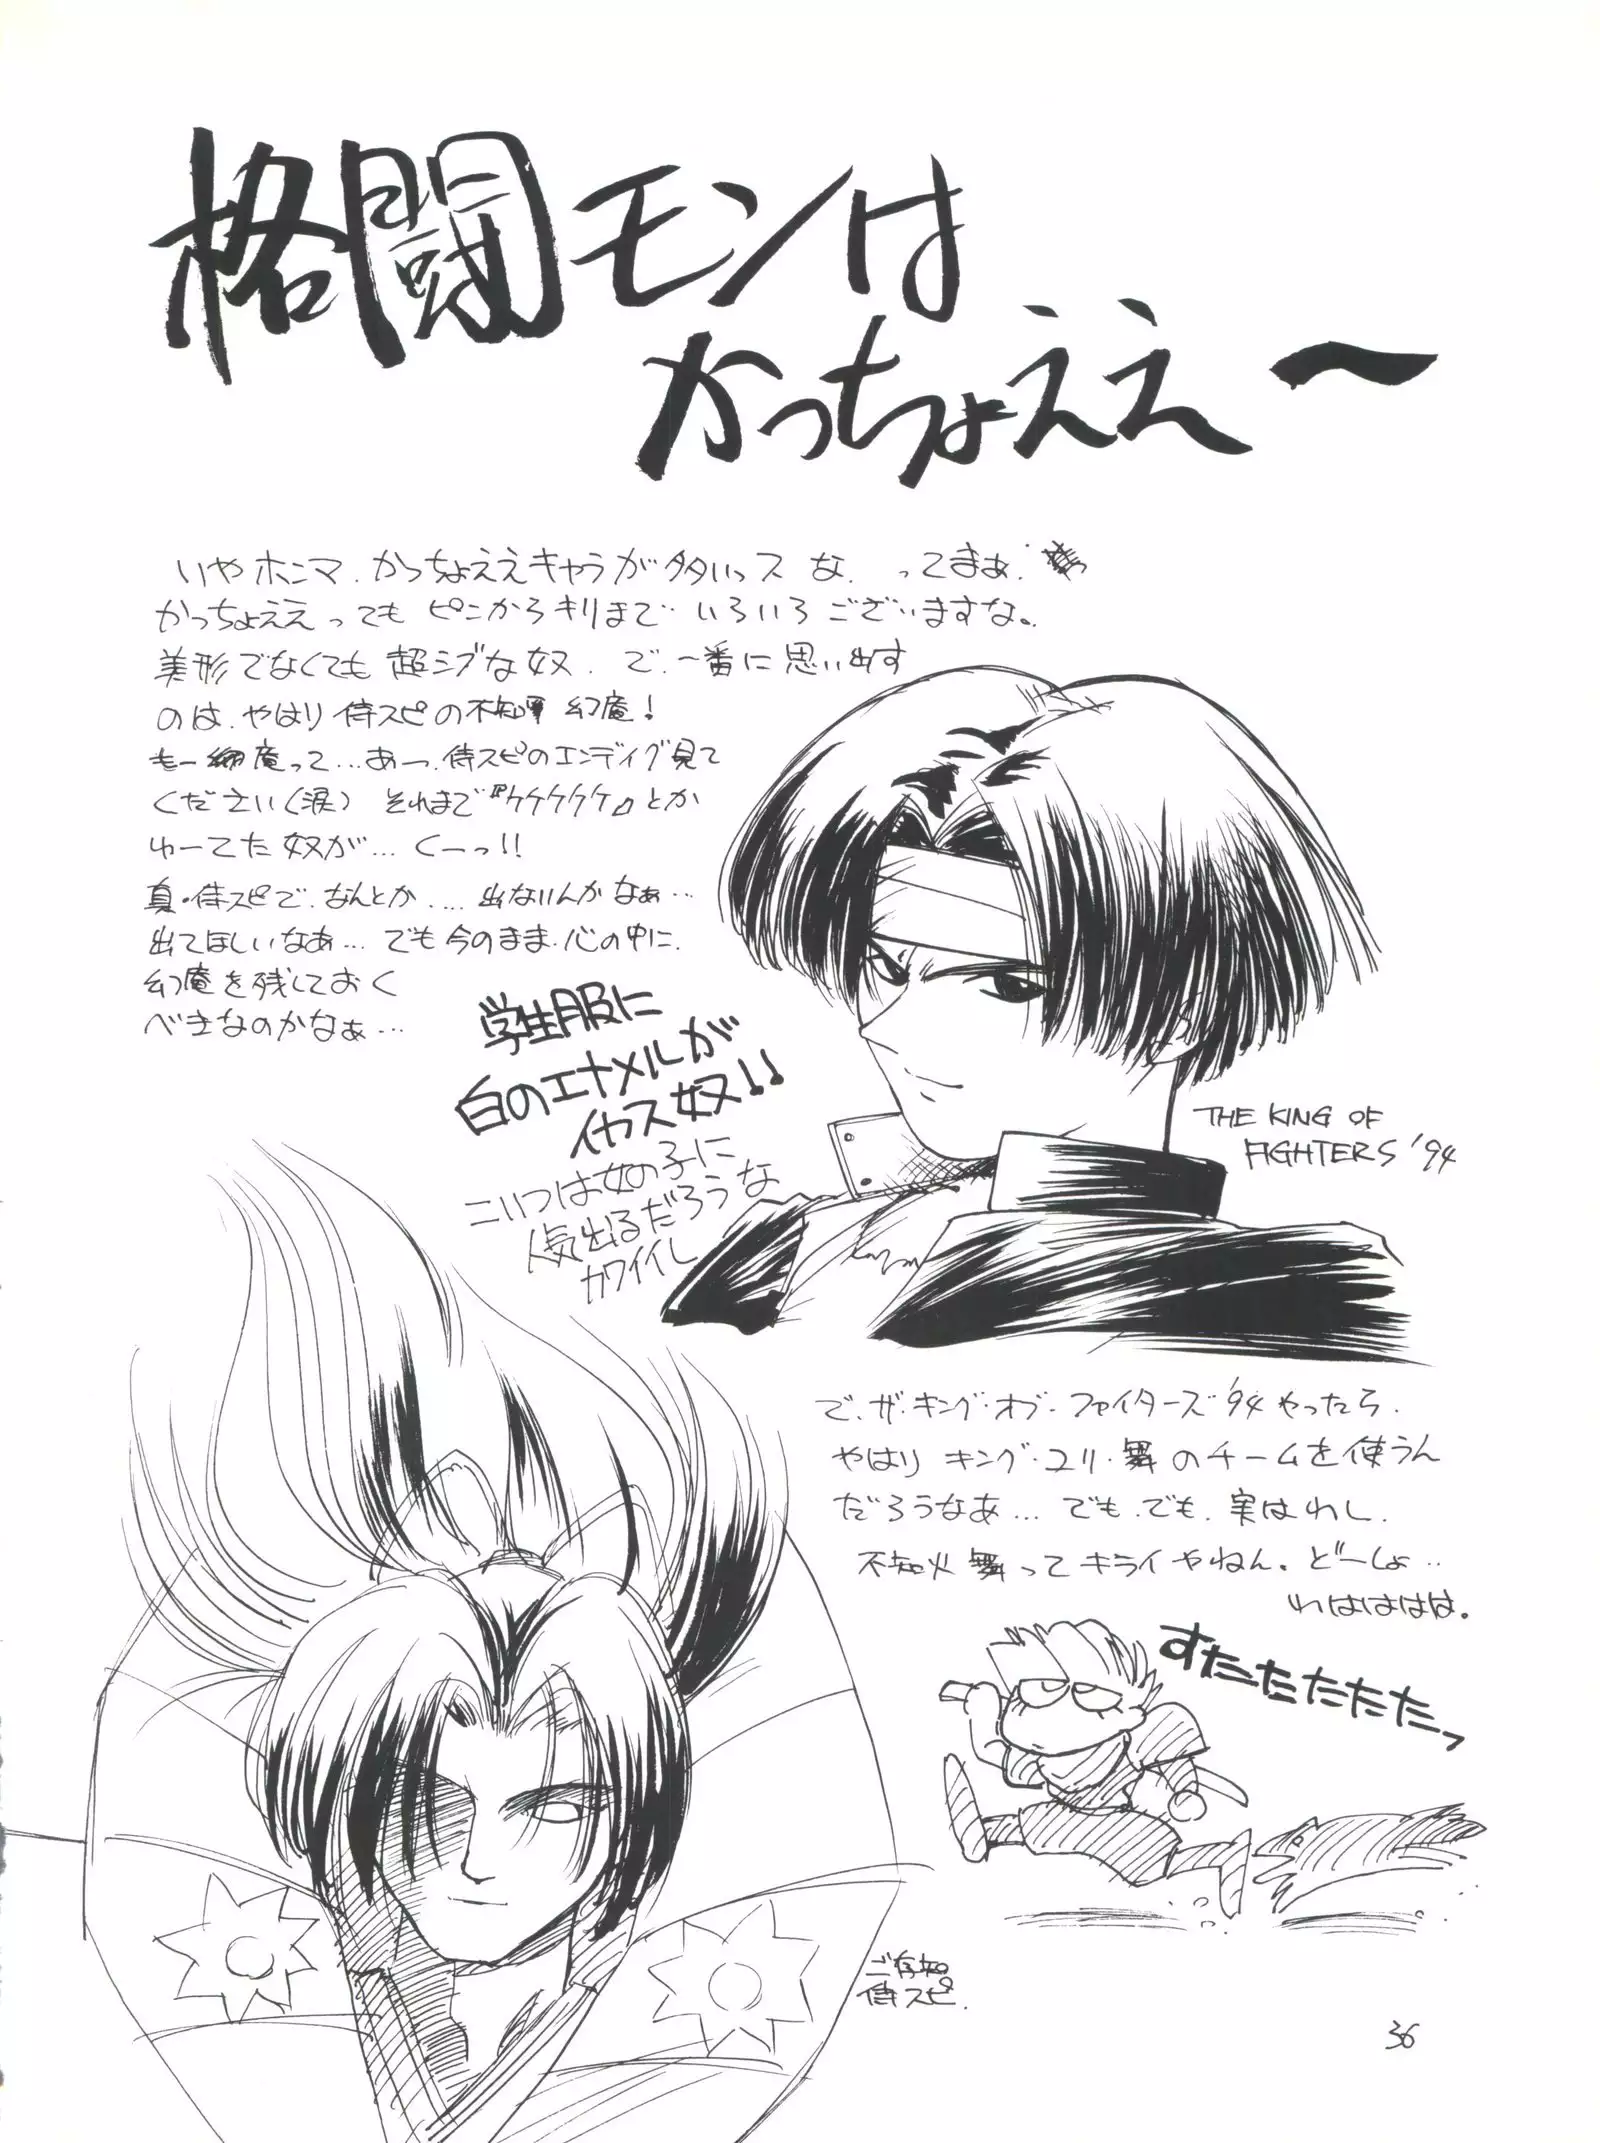 格闘モンは
かっちょええ〜
いやホンマ、かっちょええキャラが多いっスな、ってまぁ、
かっちょええってもピンからキリまでいろいろございますな。
美形でなくても超シブな奴、で、一番に思い出す
のは、やはり侍スピの不知 幻庵!
もー幻庵って…あーっ、侍スピのエンディグ見て
ください(涙) それまで『ケケケケケ』とか
ゆーてた奴が… くーっ!!
真・侍スピで、なんとか…. 出ないんかなぁ…
出てほしいなあ… でも今のまま、心の中に、
幻庵を残しておく
べきなのかなぁ…
学生服に
白のエナメルが
イカス奴!!
こいつは女の子に
人気出るだろうな
カワイイし
THE KING OF
FIGHTERS '94
で、ザ・キング・オブ・ファイターズ'94やったら、
やはり キング・ユリ・舞のチームを使うん
だろうなあ… でも、でも、実はわし、
不知火舞ってキライやねん。どーしょ…
わはははは。
すたたたたたっ
ご存知
侍スピ.
36